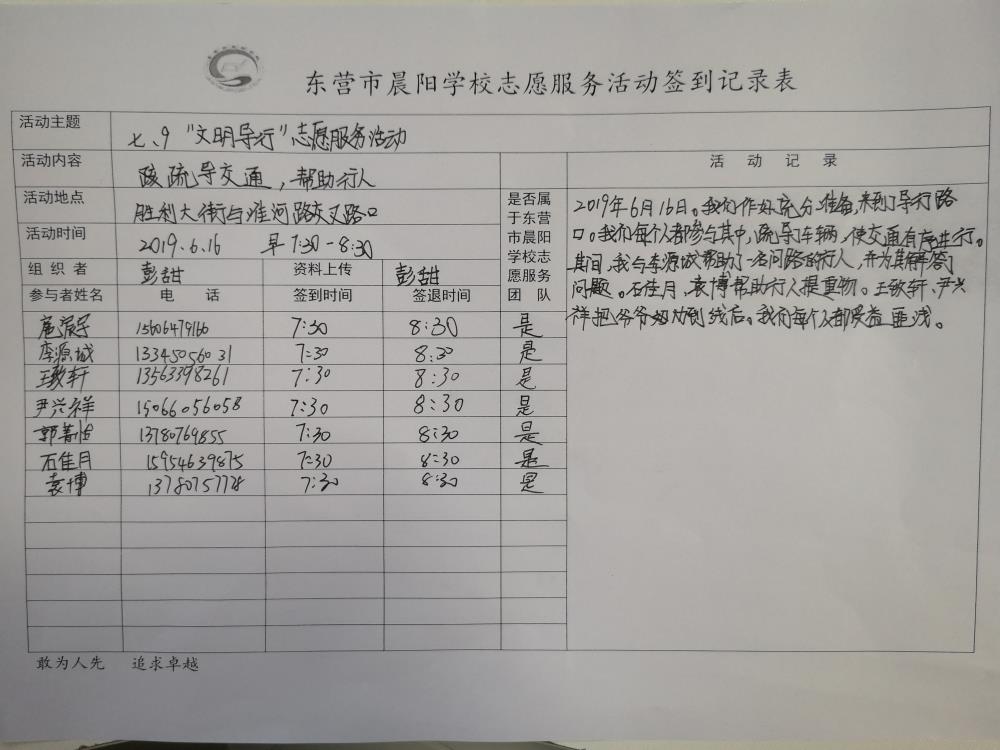 东营市晨阳学校志愿服务活动签到记录表
活动主题 七、9 “文明导行”志愿服务活动
活动内容 疏导交通，帮助行人
活动地点 胜利大街与淮河路交叉路口
活动时间 2019.6.16 早7:30-8:30
组织者 彭甜 资料上传 彭甜
参与者姓名 电话 签到时间 签退时间
是否属
于东营
市晨阳
学校志
愿服务
团队
15606479160 7:30 8:30 是
李源城 13345056031 7:30 8:30 是
王致轩 13563398261 7:30 8:30 是
尹兴祥 15066056058 7:30 8:30 是
郭 13780769855 7:30 8:30 是
石佳月 15954639875 7:30 8:30 是
袁博 13780757728 7:30 8:30 是
活动记录
2019年6月16日。我们作好充分准备，来到了导行路
口。我们每个人都参与其中，疏导车辆，使交通有序进行。
其间，我与李源城帮助了一名问路的行人，并为其解答了
问题。石佳月，袁博帮助行人提重物。王致轩、尹兴
祥把爷爷劝到线后。我们每个人都受益匪浅。
敢为人先 追求卓越